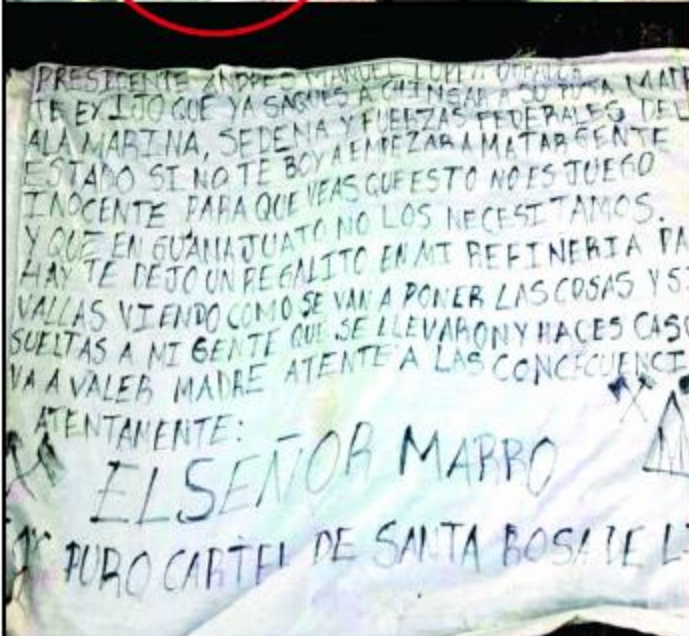 PRESIDENTE ANDRES MANUEL LOPEZ OBRADOR
TE EXIJO QUE YA SAQUES A CHINGAR A SU PUTA MADR
ALA MARINA, SEDENA Y FUERZAS FEDERALES DEL
ESTADO SI NO TE BOY A EMPEZAR A MATAR GENTE
INOCENTE PARA QUE VEAS QUE ESTO NO ES JUEGO
Y QUE EN GUANAJUATO NO LOS NECESITAMOS.
HAY TE DEJO UN REGALITO EN MI REFINERIA PA
VALLAS VIENDO COMO SE VAN A PONER LAS COSAS Y SI
SUELTAS A MI GENTE QUE SE LLEVARON Y HACES CASO
VA A VALER MADRE ATENTE A LAS CONCECUENCI
ATENTAMENTE:
EL SEÑOR MARRO
PURO CARTEL DE SANTA ROSA DE LI